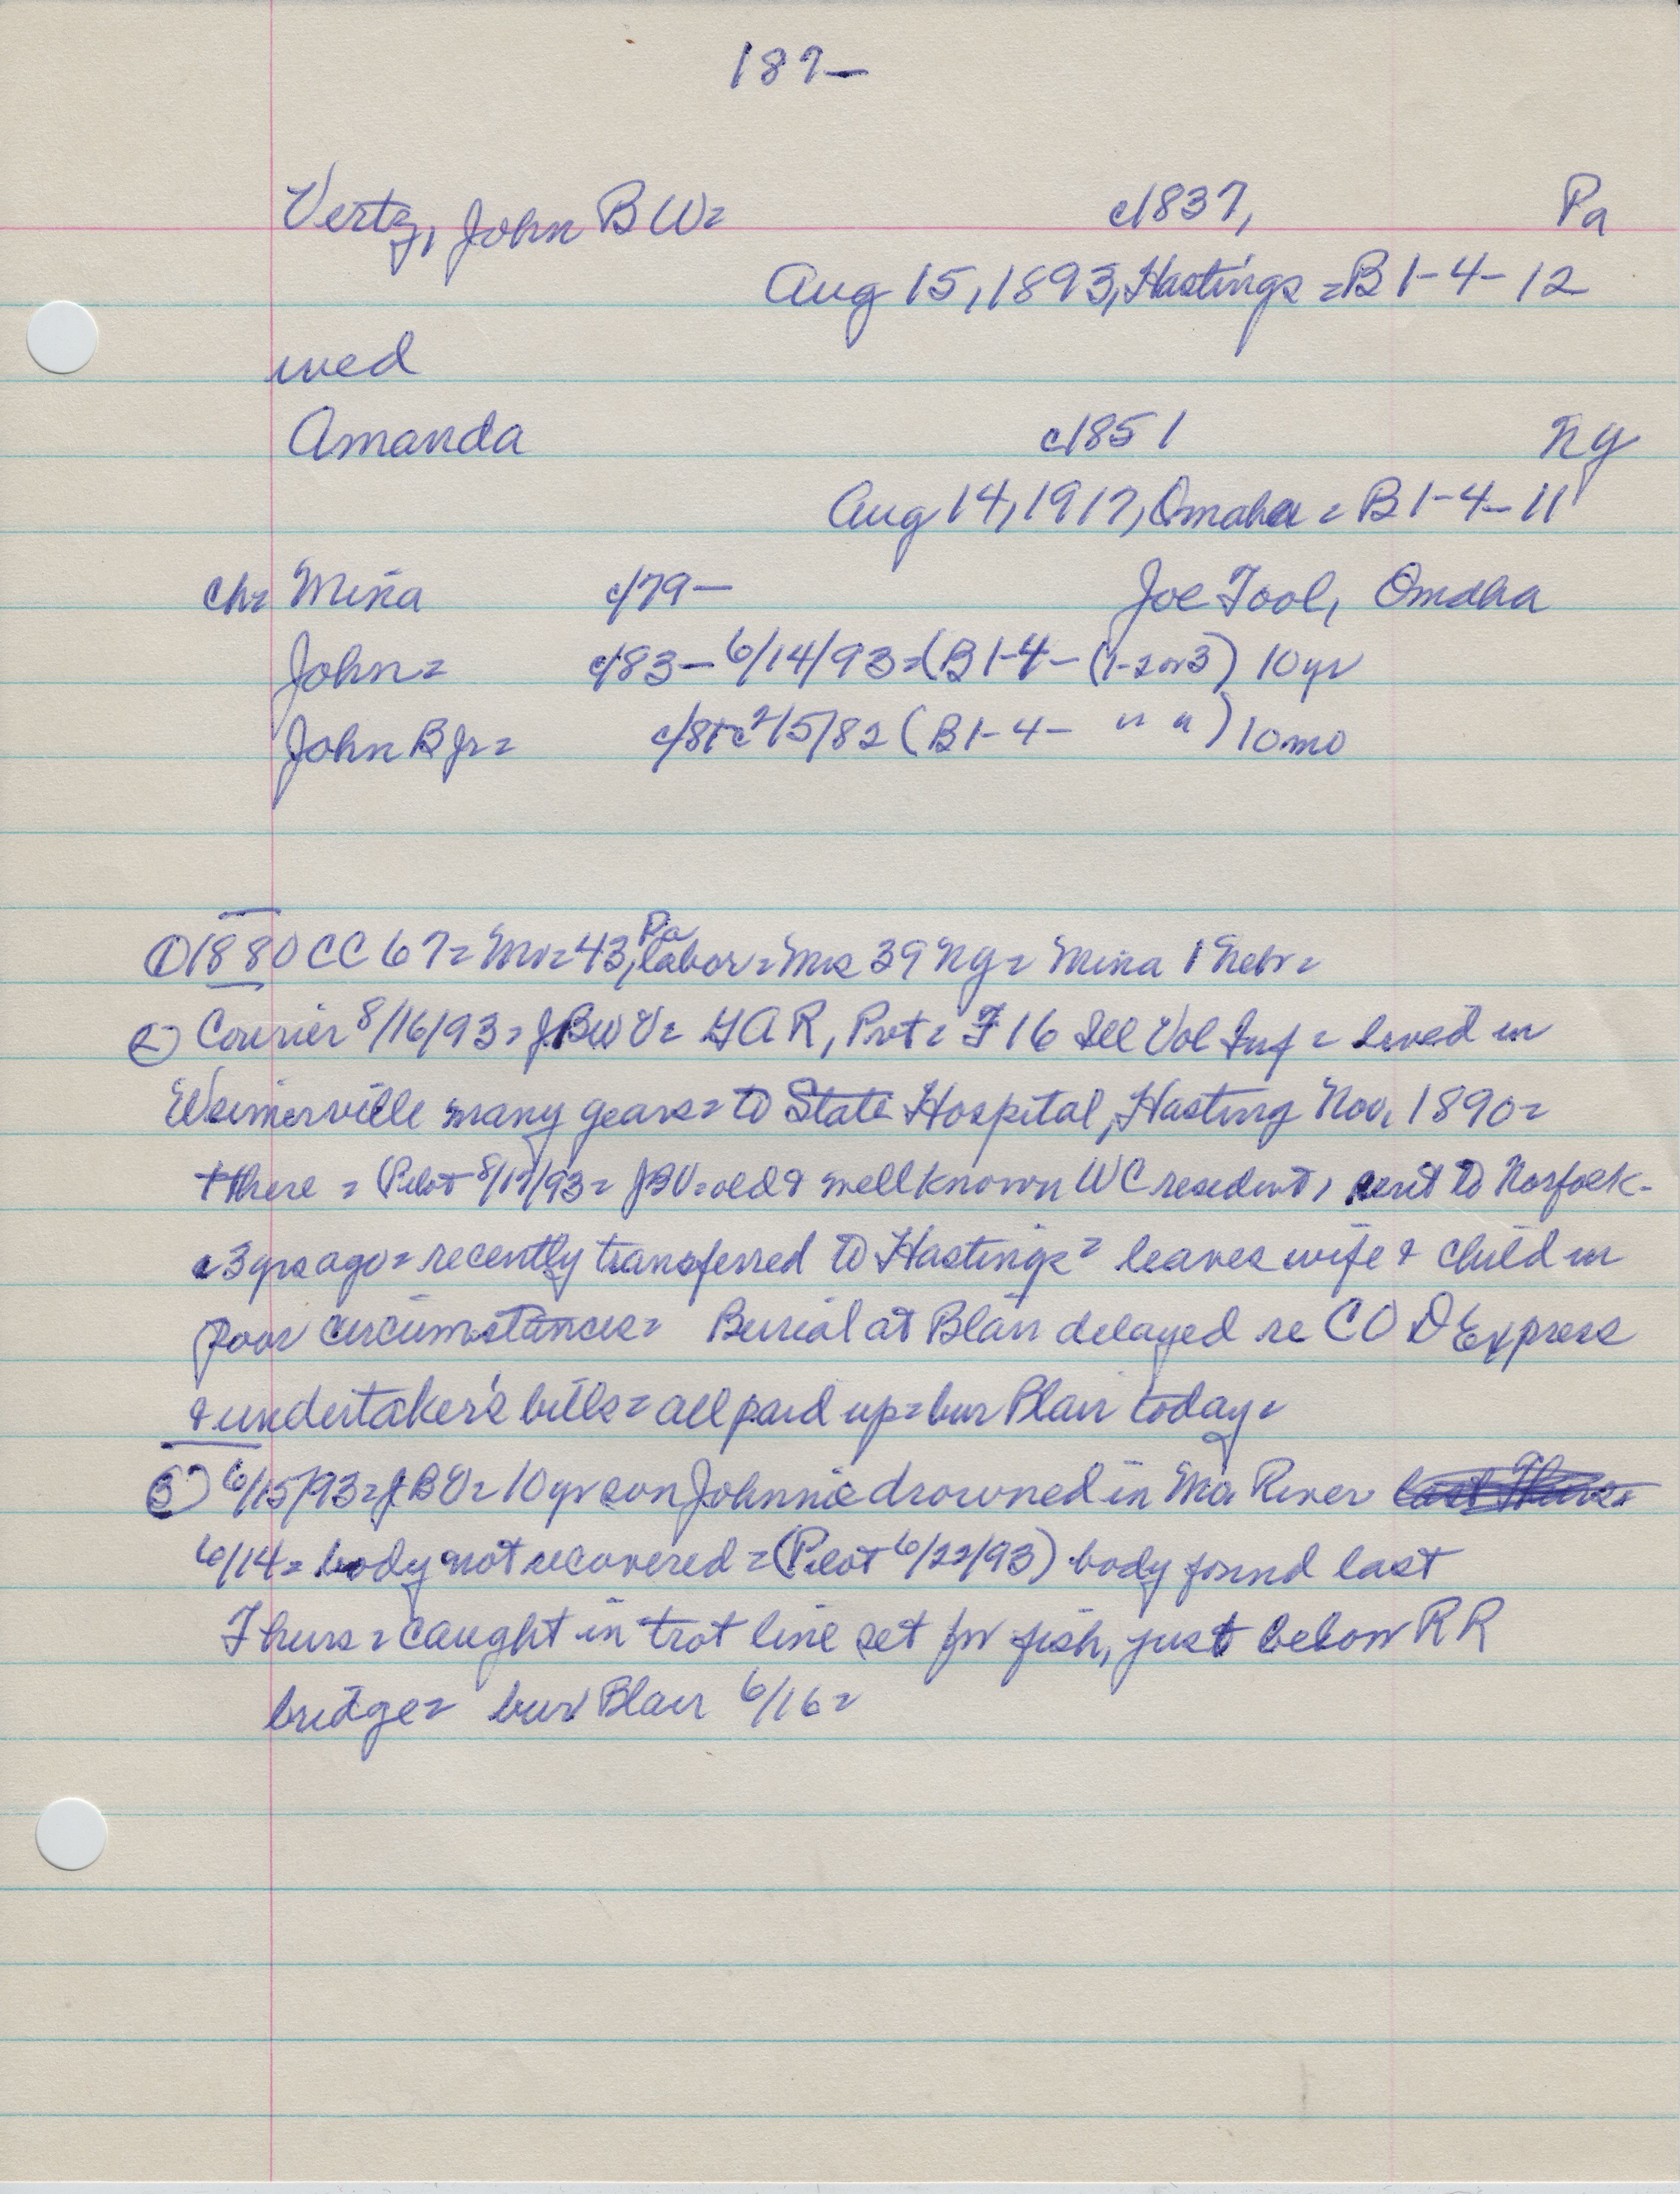 187—
Vertz, John B W= c1837, Pa
Aug 15, 1893, Hastings = B 1-4-12
wed
Amanda c1851 Ny
Aug 14, 1917, Omaha = B 1-4-11
ch= Mina c/79— Joe Tool, Omaha
John= c/83— 6/14/93=(B 1-4-(1-2 or 3) 10 yr
John B Jr= c/81-c2/5/82 (B 1-4- " ") 10 mo
① 1880 CC 67= Mr=43, Pa labor= Mrs 39 Ny= Mina 1 Nebr=
② Courier 8/16/93= JBWV= GAR, Pvt= F 16 Ill Vol Inf = lived in
Weimerville many years= to State Hospital, Hasting Nov. 1890=
there = (Pilot 8/17/93= JBV=old & well known WC resident, sent to Norfolk-
c3 yrs ago= recently transferred to Hastings= leaves wife & child in
poor circumstances= Burial at Blair delayed re C O D Express
& undertaker's bills= all paid up= bur Blair today=
③ 6/15/93= JBV= 10 yr son Johnnie drowned in Mo River last Thurs.
6/14= body not recovered =(Pilot 6/22/93) body found last
Thurs= caught in trot line set for fish, just below RR
bridge= bur Blair 6/16=